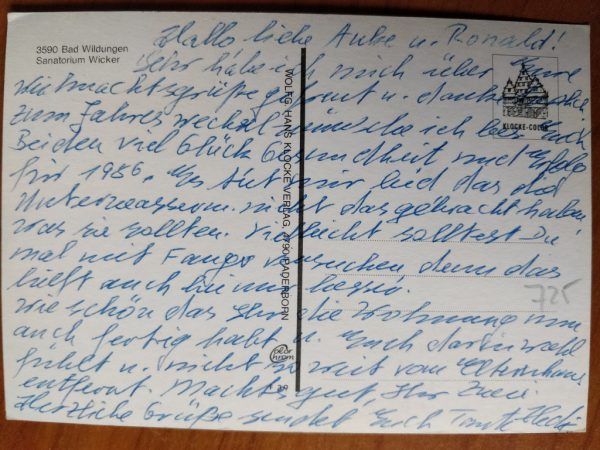 3590 Bad Wildungen
Sanatorium Wicker
WOLFG. HANS KLOCKE VERLAG, 4790 PADERBORN
KLOCKE-COLOR
725
Hallo liebe Anke u. Ronald!
Sehr habe ich mich über Eure
Weihnachtsgrüße gefreut u. danke
zum Jahreswechsel wünsche ich Euch
Beiden viel Glück Gesundheit und Erfolg
für 1986. Es tut mir leid das die
Unterwasserm. nicht das gebracht haben
was sie sollten. Vielleicht solltest Du
mal mit Fango versuchen denn das
hilft auch bei mir besser.
wie schön das Ihr die Wohnung nun
auch fertig habt u. Euch darin wohl
fühlt u. nicht so weit vom Elternhaus
entfernt. Macht's gut, Ihr Zwei.
Herzliche Grüße sendet Euch Tante